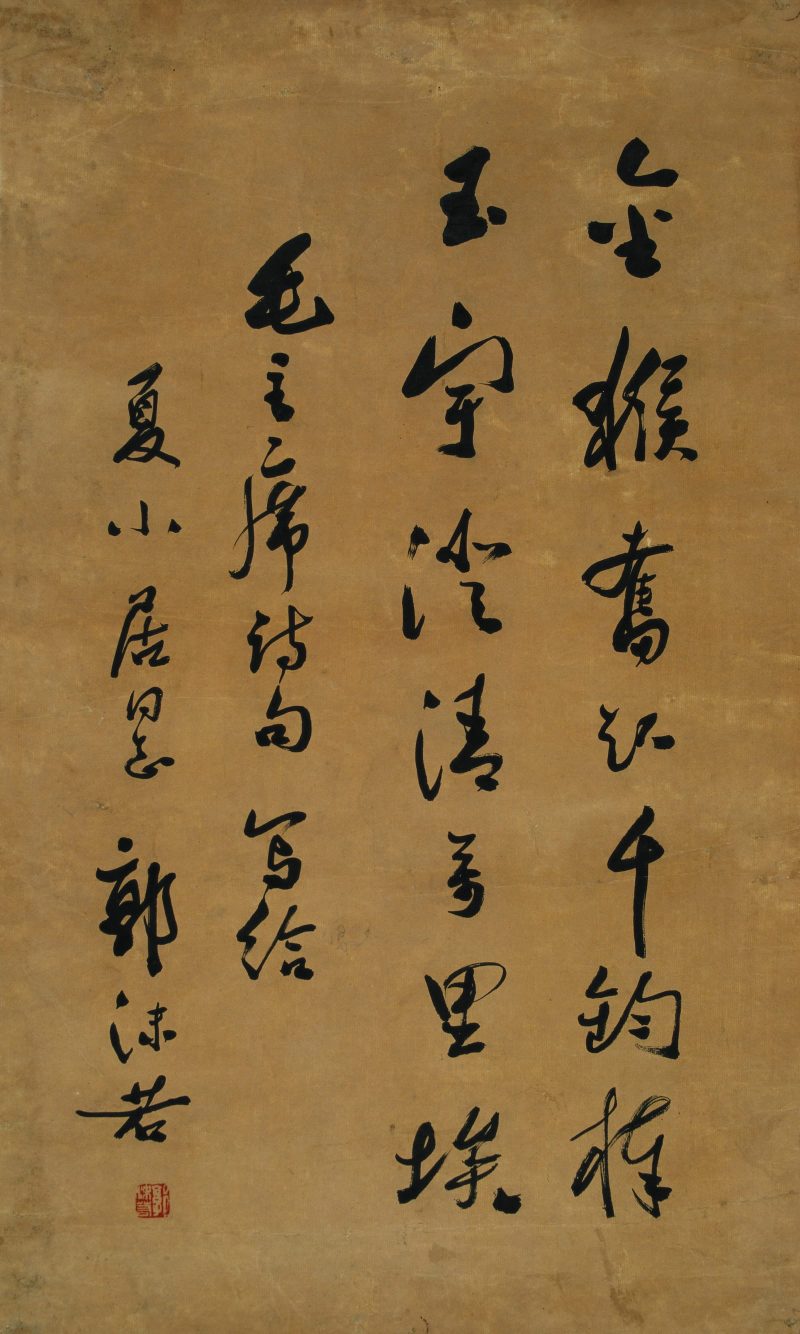 金猴奮起千鈞棒
玉宇澄清萬里埃
毛主席诗句 写给
夏小居同志 郭沫若